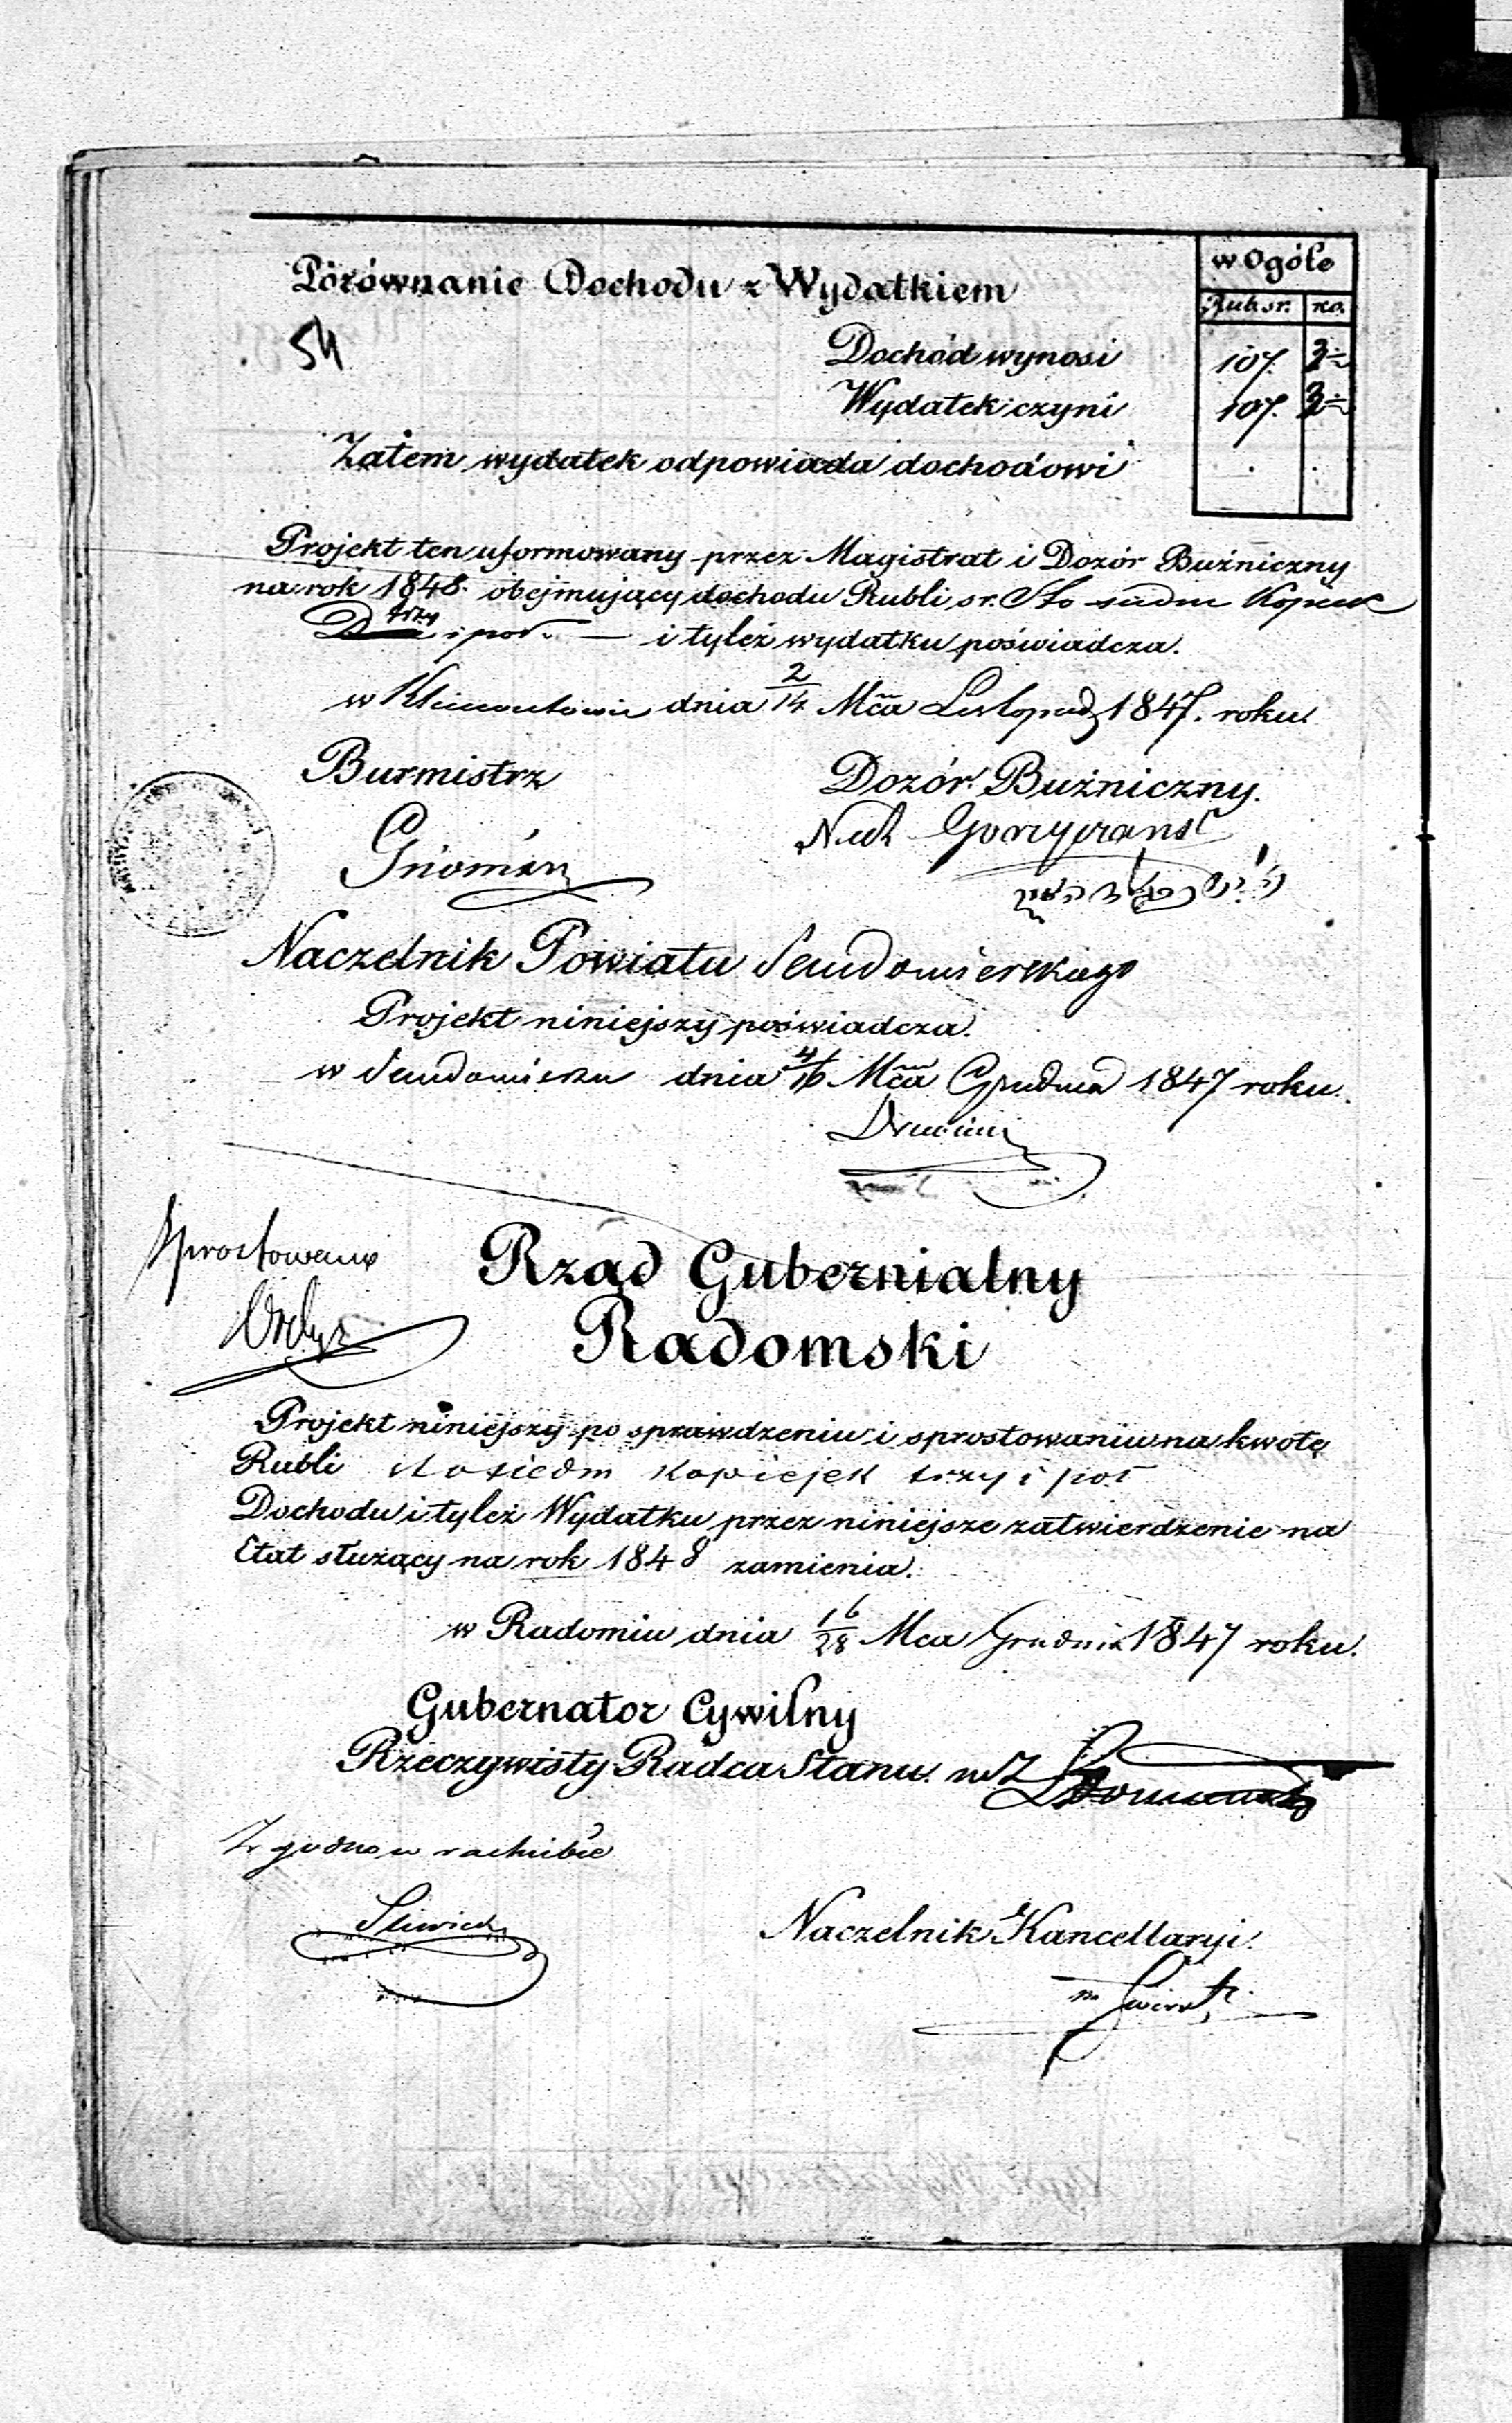 Porównanie Dochodu z Wydatkiem
w Ogóle
Rub. sr. ko.
54
Dochód wynosi 107. 3½
Wydatek czyni 107. 3½
Zatem wydatek odpowiada dochodowi . .
Projekt ten uformowany przez Magistrat i Dozór Bużniczny
na rok 1848. obejmujący dochodu Rubli sr. Sto siedm Kopiek
trzy
i poł. — i tyleż wydatku poświadcza.
w Klimontowie dnia 2/14 Mca Listopada 1847. roku.
Burmistrz
Dozór Bużniczny.
Naczelnik Powiatu Sandomierskiego
Projekt niniejszy poświadcza.
w Sandomierzu dnia 4/16 Mca Grudnia 1847 roku.
Sprostowano
Rząd Gubernialny
Radomski
Projekt niniejszy po sprawdzeniu i sprostowaniu na kwotę
Rubli sto siedm kopiejek trzy i poł
Dochodu i tyleż Wydatku przez niniejsze zatwierdzenie na
Etat służący na rok 1848 zamienia.
w Radomiu dnia 16/28 Mca Grudnia 1847 roku.
Gubernator Cywilny
Rzeczywisty Radca Stanu.
Zgodno w rachubie
Naczelnik Kancellaryi.